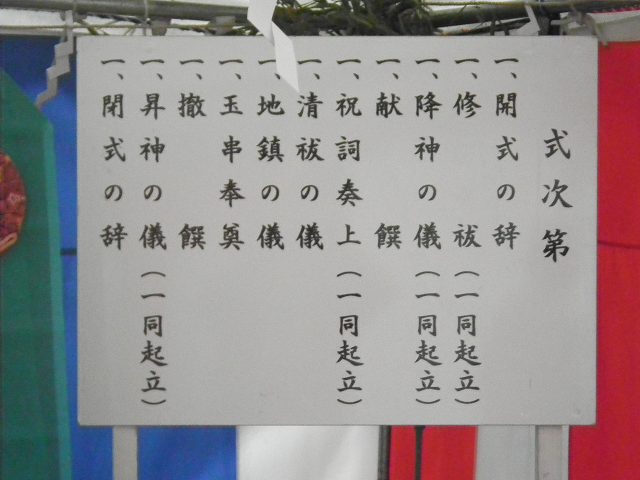 式次第
一、開式の辞
一、修祓（一同起立）
一、降神の儀（一同起立）
一、献饌
一、祝詞奏上（一同起立）
一、清祓の儀
一、地鎮の儀
一、玉串奉奠
一、撤饌
一、昇神の儀（一同起立）
一、閉式の辞